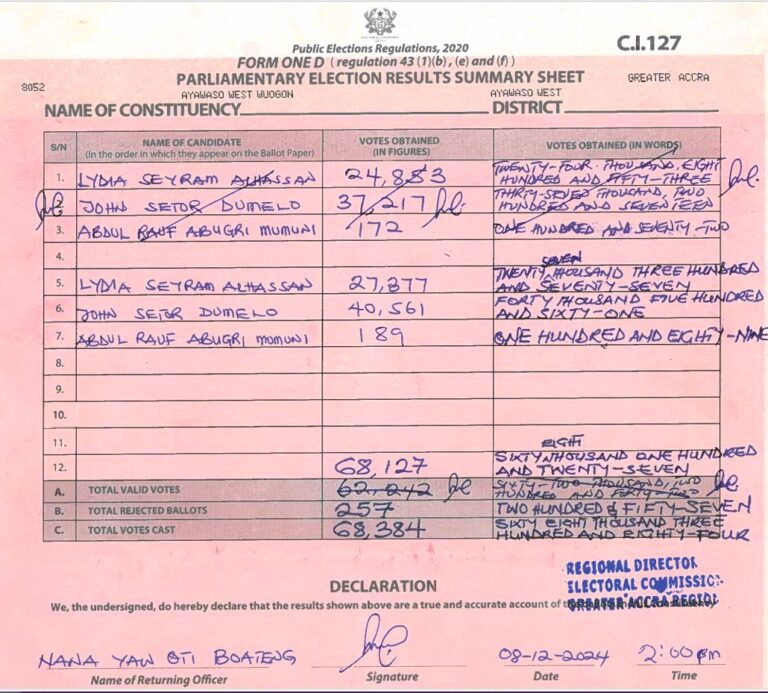 Public Elections Regulations, 2020
C.I.127
FORM ONE D ( regulation 43 (1)(b), (e) and (f) )
PARLIAMENTARY ELECTION RESULTS SUMMARY SHEET
GREATER ACCRA
8052
AYAWASO WEST WUOGON
AYAWASO WEST
NAME OF CONSTITUENCY
DISTRICT
S/N
NAME OF CANDIDATE
(In the order in which they appear on the Ballot Paper)
VOTES OBTAINED
(IN FIGURES)
VOTES OBTAINED (IN WORDS)
1. LYDIA SEYRAM ALHASSAN 24,853 TWENTY-FOUR THOUSAND, EIGHT
HUNDRED AND FIFTY-THREE
2. JOHN SETOR DUMELO 37,217 THIRTY-SEVEN THOUSAND, TWO
HUNDRED AND SEVENTEEN
3. ABDUL RAUF ABUGRI MUMUNI 172 ONE HUNDRED AND SEVENTY-TWO
4.
SEVEN
5. LYDIA SEYRAM ALHASSAN 27,377 TWENTY THOUSAND THREE HUNDRED
AND SEVENTY-SEVEN
6. JOHN SETOR DUMELO 40,561 FORTY THOUSAND FIVE HUNDRED
AND SIXTY-ONE
7. ABDUL RAUF ABUGRI MUMUNI 189 ONE HUNDRED AND EIGHTY-NINE
8.
9.
10.
11.
EIGHT
12. 68,127 SIXTY THOUSAND ONE HUNDRED
AND TWENTY-SEVEN
A. TOTAL VALID VOTES 62,242 SIXTY-TWO THOUSAND, TWO
HUNDRED AND FORTY-TWO
B. TOTAL REJECTED BALLOTS 257 TWO HUNDRED & FIFTY-SEVEN
C. TOTAL VOTES CAST 68,384 SIXTY EIGHT THOUSAND THREE
HUNDRED AND EIGHTY-FOUR
REGIONAL DIRECTOR
ELECTORAL COMMISSION
GREATER ACCRA REGION
DECLARATION
We, the undersigned, do hereby declare that the results shown above are a true and accurate account of the
NANA YAW OTI BOATENG
08-12-2024
2:00pm
Name of Returning Officer
Signature
Date
Time